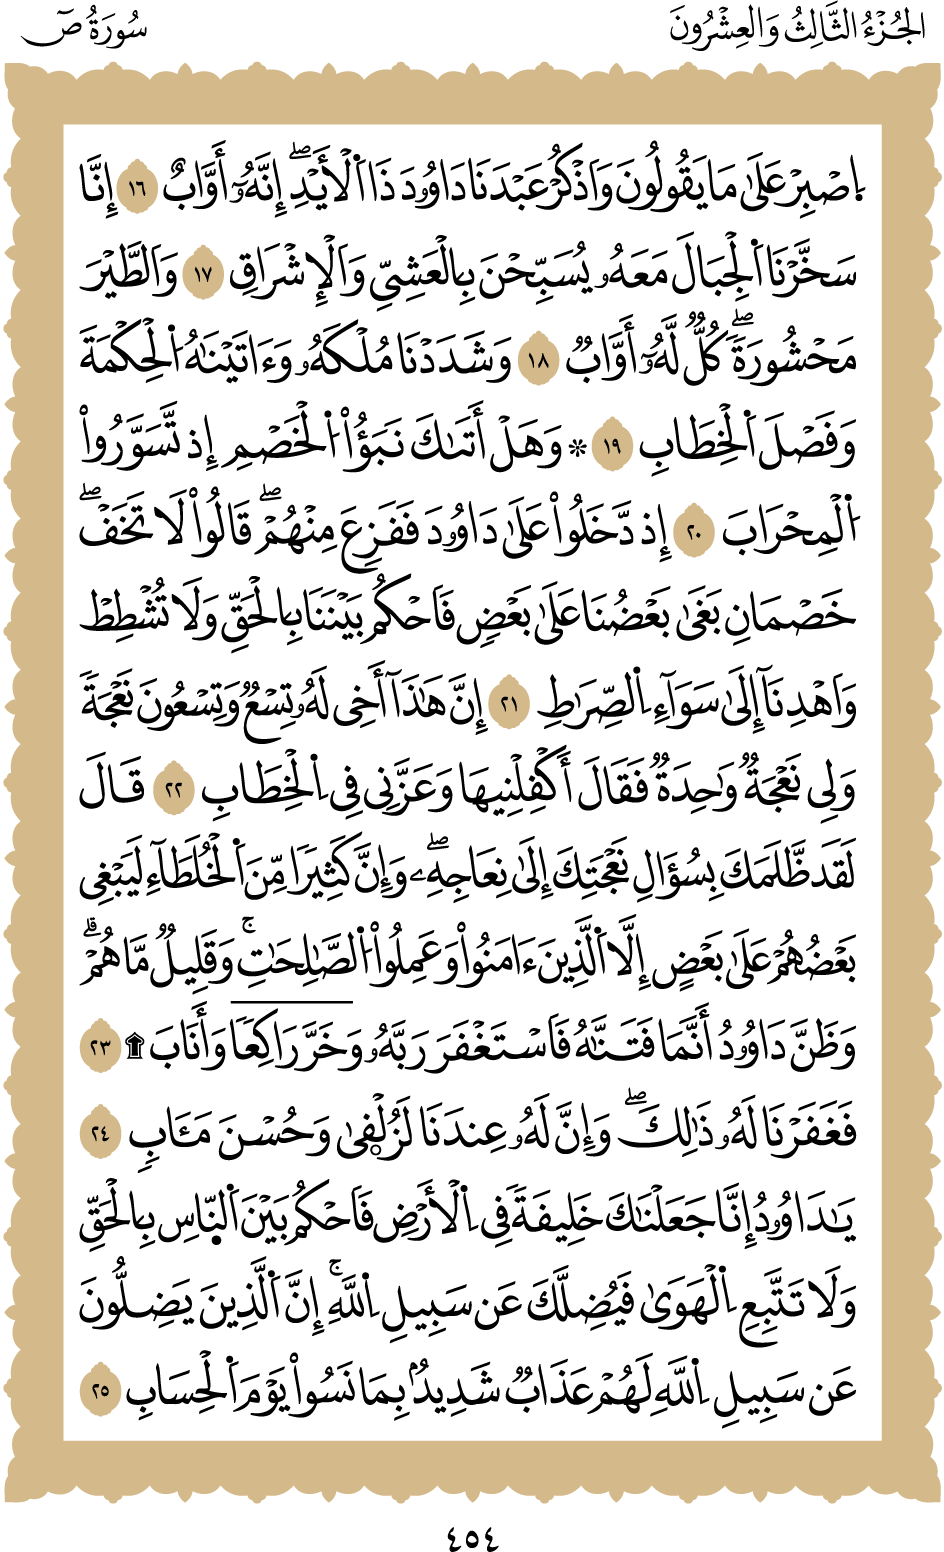 الجُزْءُ الثَّالِثُ وَالعِشْرُونَ
سُورَةُ صٓ
اَ۪صْبِرْ عَلَىٰ مَا يَقُولُونَ وَاَذْكُرْ عَبْدَنَا دَاوُۥدَ ذَا اَ۬لْأَيْدِۖ إِنَّهُۥٓ أَوَّابٌ ١٦ إِنَّا
سَخَّرْنَا اَ۬لْجِبَالَ مَعَهُۥ يُسَبِّحْنَ بِالْعَشِيِّ وَالْإِشْرَاقِ ١٧ وَالطَّيْرَ
مَحْشُورَةٗۖ كُلّٞ لَّهُۥٓ أَوَّابٞ ١٨ وَشَدَدْنَا مُلْكَهُۥ وَءَاتَيْنَٰهُ اُ۬لْحِكْمَةَ
وَفَصْلَ اَ۬لْخِطَابِ ١٩ ۞ وَهَلْ أَتَىٰكَ نَبَؤُاْ اُ۬لْخَصْمِ إِذ تَّسَوَّرُواْ
اُ۬لْمِحْرَابَ ٢٠ إِذ دَّخَلُواْ عَلَىٰ دَاوُۥدَ فَفَزِعَ مِنْهُمْۖ قَالُواْ لَا تَخَفْۖ
خَصْمَانِ بَغَىٰ بَعْضُنَا عَلَىٰ بَعْضٖ فَاحْكُم بَيْنَنَا بِالْحَقِّ وَلَا تُشْطِطْ
وَاَهْدِنَآ إِلَىٰ سَوَآءِ اِ۬لصِّرَٰطِ ٢١ إِنَّ هَٰذَآ أَخِى لَهُۥ تِسْعٞ وَتِسْعُونَ نَعْجَةٗ
وَلِى نَعْجَةٞ وَٰحِدَةٞ فَقَالَ أَكْفِلْنِيهَا وَعَزَّنِى فِى اِ۬لْخِطَابِ ٢٢ قَالَ
لَقَد ظَّلَمَكَ بِسُؤَالِ نَعْجَتِكَ إِلَىٰ نِعَاجِهِۦۖ وَإِنَّ كَثِيرٗا مِّنَ اَ۬لْخُلَطَآءِ لَيَبْغِى
بَعْضُهُمْ عَلَىٰ بَعْضٍ إِلَّا اَ۬لَّذِينَ ءَامَنُواْ وَعَمِلُواْ اُ۬لصَّٰلِحَٰتِۚ وَقَلِيلٞ مَّا هُمْۗ
وَظَنَّ دَاوُۥدُ أَنَّمَا فَتَنَّٰهُ فَاسْتَغْفَرَ رَبَّهُۥ وَخَرَّ رَاكِعٗا وَأَنَابَ ۩ ٢٣
فَغَفَرْنَا لَهُۥ ذَٰلِكَۖ وَإِنَّ لَهُۥ عِندَنَا لَزُلْفۭىٰ وَحُسْنَ مَـَٔابٖ ٢٤
يَٰدَاوُۥدُ إِنَّا جَعَلْنَٰكَ خَلِيفَةٗ فِى اِ۬لْأَرْضِ فَاحْكُم بَيْنَ اَ۬لنّ۪اسِ بِالْحَقِّ
وَلَا تَتَّبِعِ اِ۬لْهَوَىٰ فَيُضِلَّكَ عَن سَبِيلِ اِ۬للَّهِۚ إِنَّ اَ۬لَّذِينَ يَضِلُّونَ
عَن سَبِيلِ اِ۬للَّهِ لَهُمْ عَذَابٞ شَدِيدُۢ بِمَا نَسُواْ يَوْمَ اَ۬لْحِسَابِ ٢٥
٤٥٤